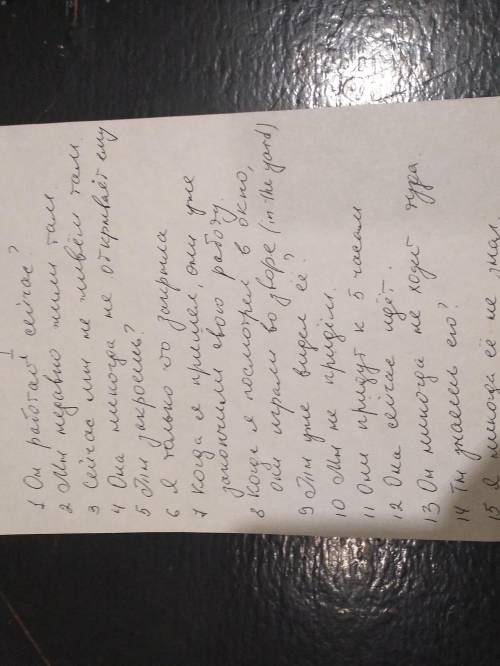 1 Он работает сейчас?
2 Мы недавно жили там.
3 Сейчас мы не живём там.
4 Она никогда не открывает ему
5 Ты закроешь?
6 Я только что закрыла
7 Когда я пришел, они уже
закончили свою работу.
8 Когда я посмотрел в окно,
они играли во дворе (in the yard)
9 Ты уже видел её?
10 Мы не придём.
11 Они придут к 5 часам
12 Она сейчас идёт.
13 Он никогда не ходит туда.
14 Ты знаешь его?
15 Я никогда её не знал